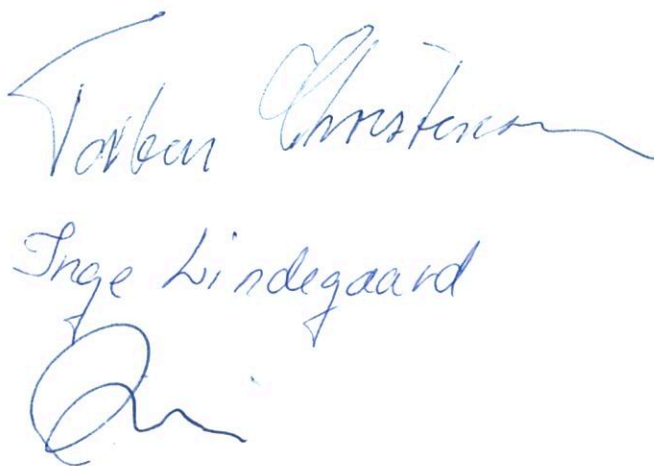 Torben Christensen
Inge Lindegaard